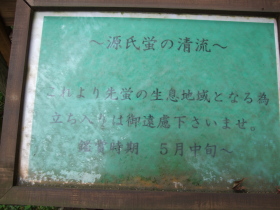 ～源氏蛍の清流～
これより先蛍の生息地域となる為
立ち入りは御遠慮下さいませ。
鑑賞時期 5月中旬～